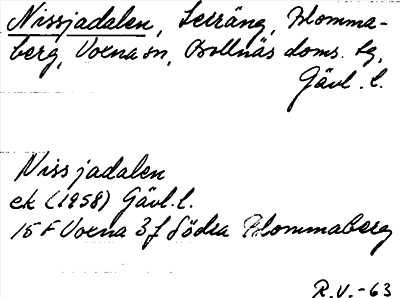 Nissjadalen, Serräng, Blomma-
berg, Voxna sn, Bollnäs doms. tg,
Gävl. l.
Nissjadalen
ek (1958) Gävl. l.
15 F Voxna 3f Södra Blommaberg
R.V. - 63